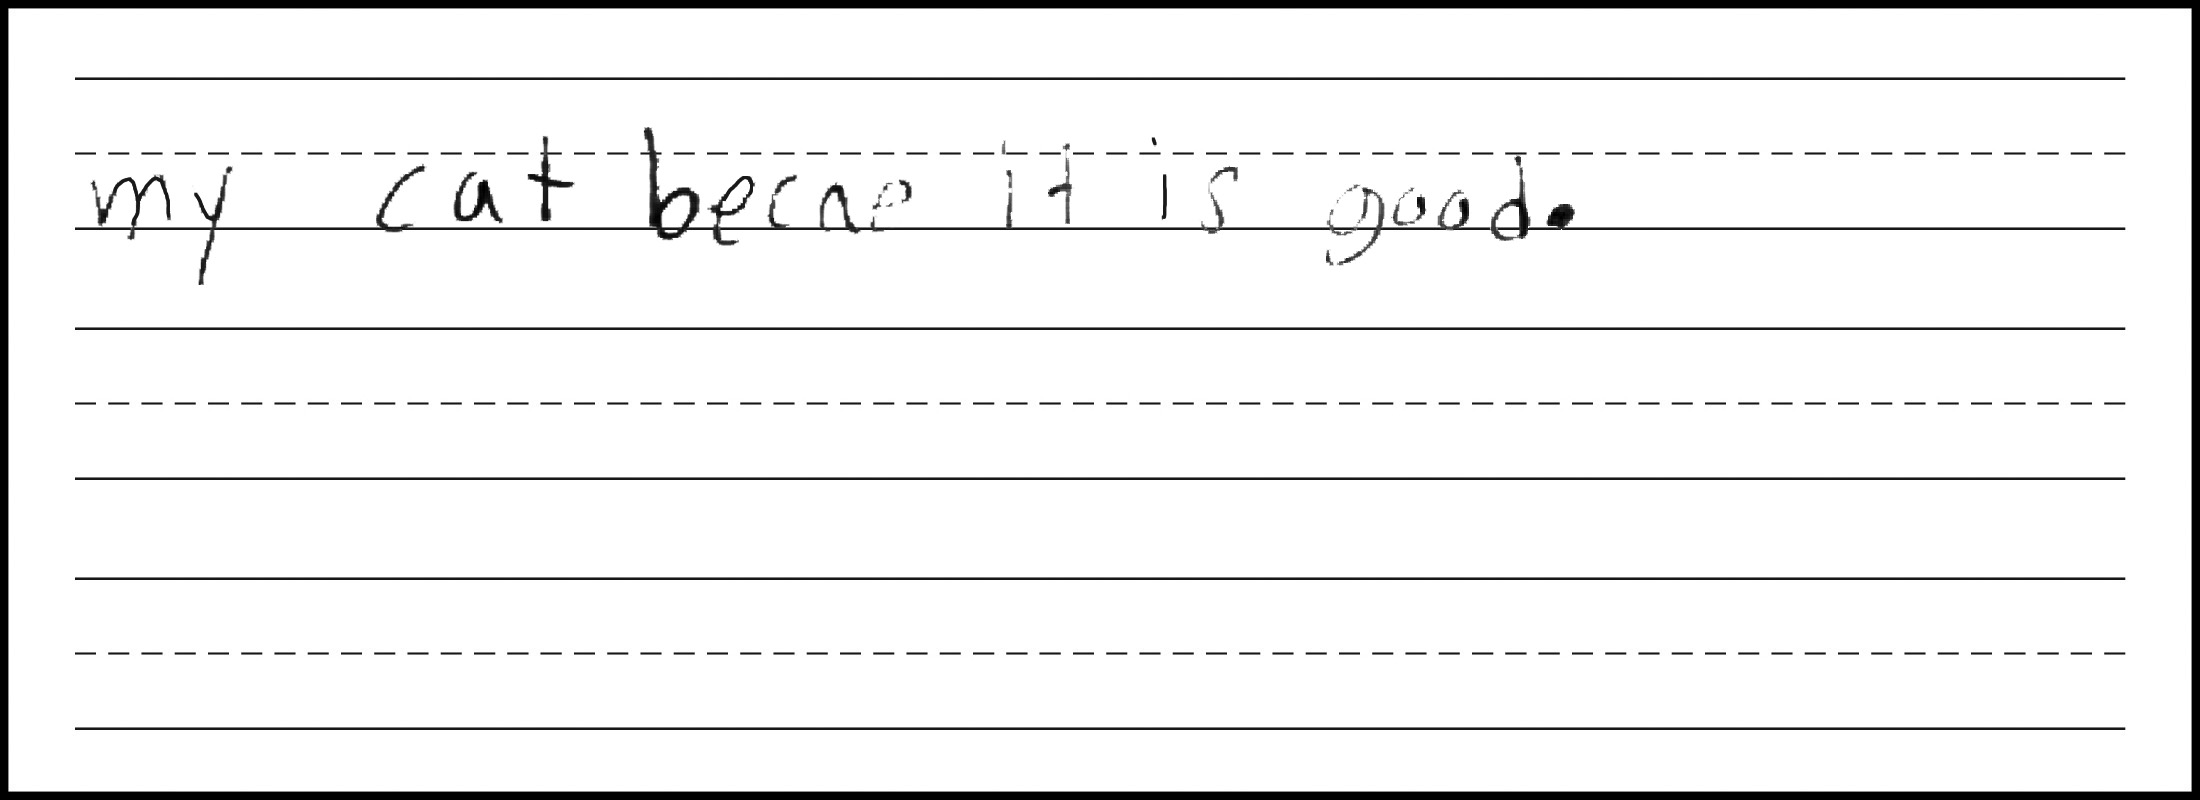 my cat becne it is good.